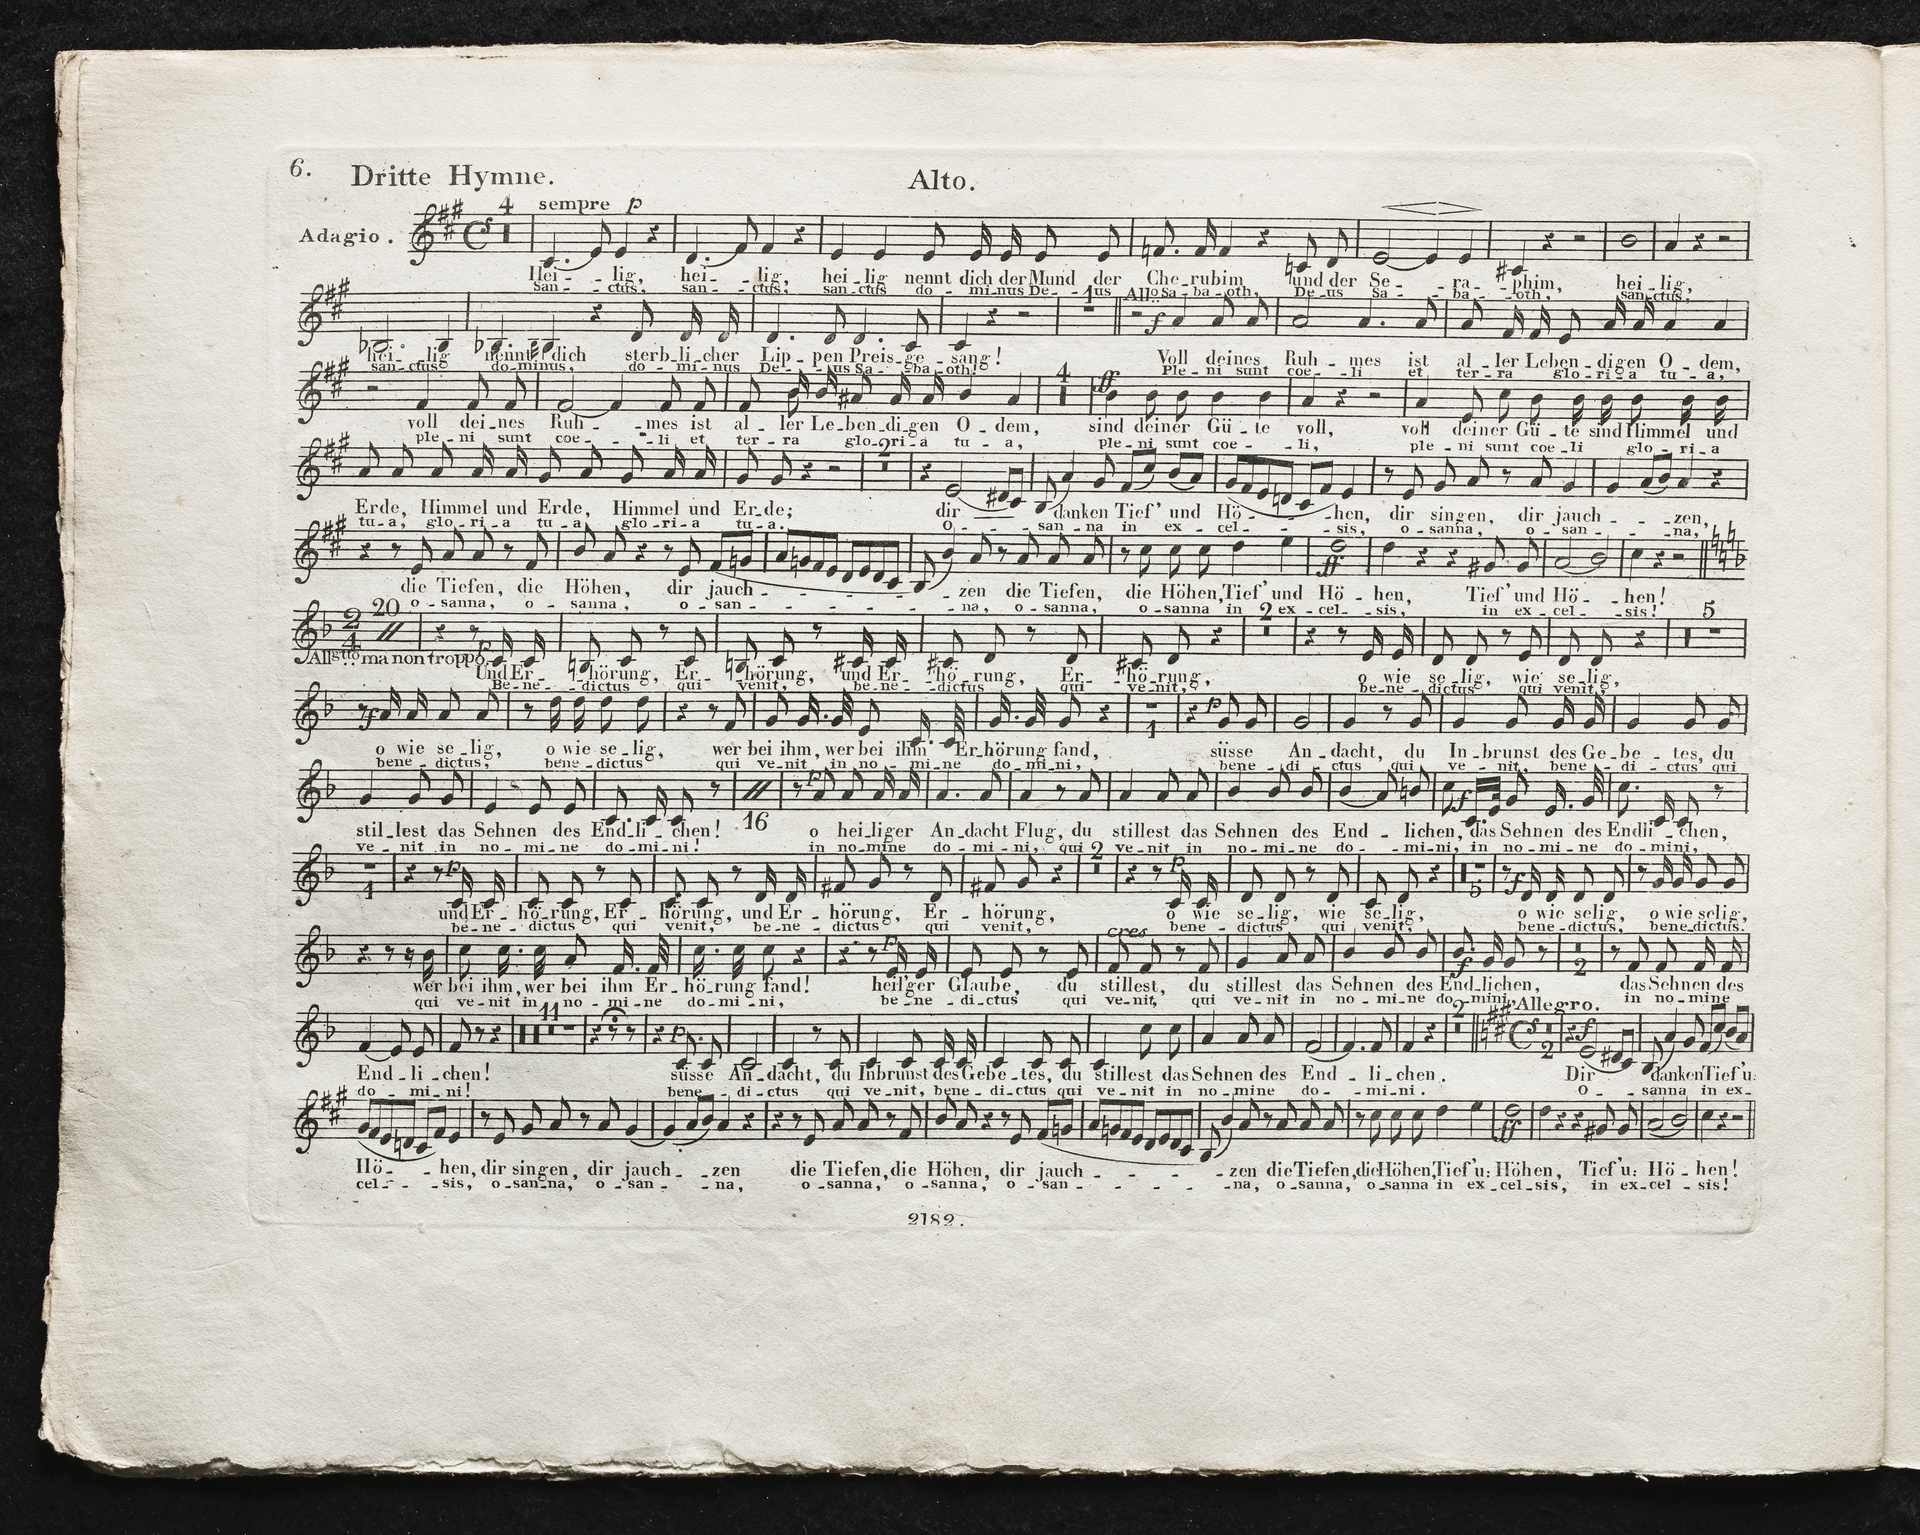 6. Dritte Hymne. Alto.
4 sempre p
Adagio.
Hei - - lig, hei - - lig, hei - lig nennt dich der Mund der Che - rubim und der Se - - ra - - phim, hei - lig,
san - - ctus, san - - ctus, san - ctus do - mi - nus De - - us Sa - ba - oth, De - us Sa - - ba - - oth, san - ctus,
1 Allo f
hei - - lig nennt dich sterb - li - cher Lip - pen Preis - ge - sang! Voll deines Ruh - mes ist al - ler Leben - digen O - dem,
san - ctus do - minus, do - mi - nus De - - us Sa - ba - oth! Ple - ni sunt coe - - li et ter - ra glo - ri - a tu - a,
4 ff
voll dei - nes Ruh - - mes ist al - ler Le - ben - di - gen O - dem, sind deiner Gü - te voll, voll deiner Gü - te sind Himmel und
ple - ni sunt coe - - li et ter - ra glo - ri - a tu - a, ple - ni sunt coe - li, ple - ni sunt coe - li glo - ri - a
2
Erde, Himmel und Erde, Himmel und Er - de; dir danken Tief' und Hö - - hen, dir singen, dir jauch - - zen,
tu - a, glo - ri - a tu - a glo - ri - a tu - a. o - - san - na in ex - cel - - sis, o - sanna, o - san - - na,
die Tiefen, die Höhen, dir jauch - - - - zen die Tiefen, die Höhen, Tief' und Hö - hen, Tief' und Hö - hen!
ff
o - sanna, o - sanna, o - san - - - - na, o - sanna, o - sanna in ex - cel - sis, in ex - cel - sis!
2/4 20 2 5
Allgtto ma non troppo. p
Und Er - hörung, Er - hörung, und Er - hö - rung, Er - hö - rung, o wie se - lig, wie se - lig,
Be - ne - dictus qui venit, be - ne - dictus qui ve - nit, be - ne - dictus qui venit,
f 1 p
o wie se - lig, o wie se - lig, wer bei ihm, wer bei ihm Er - hörung fand, süsse An - dacht, du In - brunst des Ge - be - tes, du
bene - dictus, bene - dictus qui ve - nit in no - mi - ne do - mi - ni, bene - di - ctus qui ve - nit, bene - di - ctus qui
16 p f
stil - lest das Sehnen des End - li - chen! o hei - liger An - dacht Flug, du stillest das Sehnen des End - lichen, das Sehnen des Endli - chen,
ve - nit in no - mi - ne do - mi - ni! in no - mine do - mi - ni, qui ve - nit in no - mi - ne do - - mi - ni, in no - mi - ne do - mini,
1 p 2 p 5 f
und Er - hö - rung, Er - hörung, und Er - hörung, Er - hörung, o wie se - lig, wie se - lig, o wie selig, o wie selig,
be - ne - dictus qui venit, be - ne - dictus qui venit, bene - dictus qui venit, bene - dictus, bene - dictus.
p cres f 2
wer bei ihm, wer bei ihm Er - hö - rung fand! heil'ger Glaube, du stillest, du stillest das Sehnen des End - lichen, das Sehnen des
qui ve - nit in no - mi - ne do - mi - ni, be - ne - dictus qui ve - nit, qui ve - nit in no - mi - ne do - mini, in no - mine
11 p 2 Allegro. 2 f
End - li - chen! süsse An - dacht, du Inbrunst des Gebe - tes, du stillest das Sehnen des End - li - chen. Dir danken Tief' u.
do - mi - ni! bene - di - ctus qui ve - nit, bene - di - ctus qui ve - nit in no - mine do - - mi - ni. o - - sanna in ex -
ff
Hö - - hen, dir singen, dir jauch - zen die Tiefen, die Höhen, dir jauch - - - - zen die Tiefen, die Höhen, Tief' u: Höhen, Tief' u: Hö - hen!
cel - - sis, o - san - na, o - san - - na, o - sanna, o - sanna, o - san - - - - na, o - sanna, o - sanna in ex - cel - sis, in ex - cel - sis!
2182.